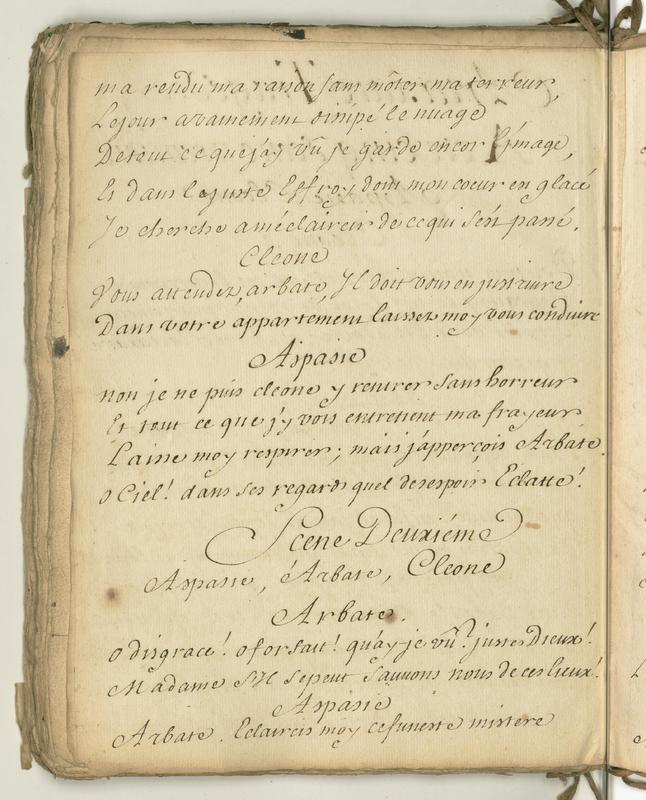 ma rendu ma raison sans môter ma terreur,
Le jour avainement disipé le nuage
De tout ce que j'ay vû je garde encor L'image,
Et dans le juste Effroy dont mon coeur en glacé
Je cherche a mé claircir de ce qui s'est passé.
Cleone
Vous attendez, arbate, Il doit vous en justruire
Dans votre appartement laissez moy vous conduire
Aspasie
non je ne puis cleone y rentrer sans horreur
Et tout ce que j'y vois entretient ma frayeur
Laisse moy respirer; mais j'apperçois Arbate.
o Ciel! dans ses regards quel desespoir Eclatte!
Scene Deuxiéme
Aspasie, Arbate, Cleone
Arbate.
o disgrace! o forfait! qu'ay je vû? justes Dieux!
Madame s'Il se peut sauvons nous de ces lieux!
Aspasie
Arbate. Eclaircis moy ce funeste mistere